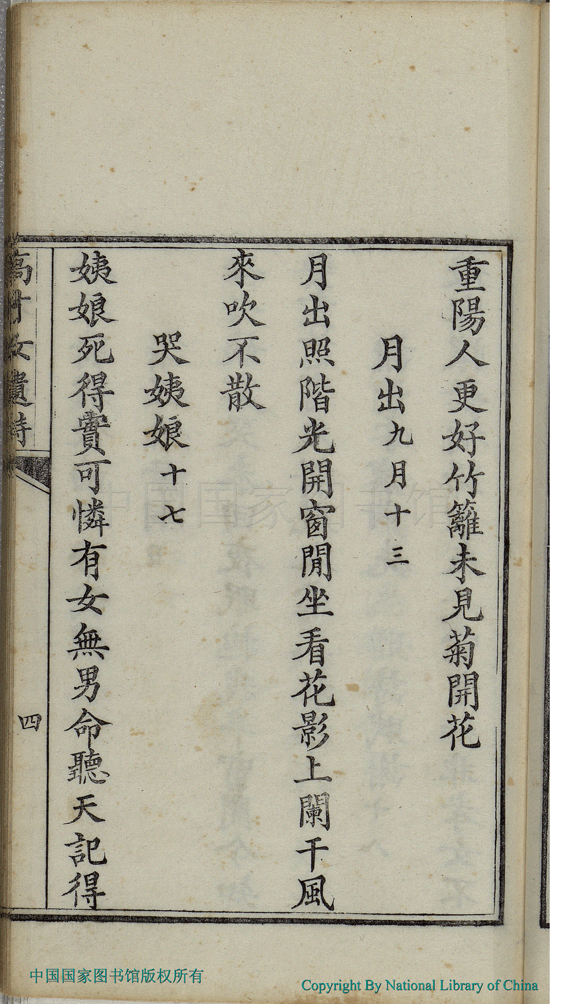 重陽人更好竹籬未見菊開花
月出九月十三
月出照階光開窗閒坐看花影上闌干風
來吹不散
哭姨娘十七
姨娘死得實可憐有女無男命聽天記得
女遺詩
四
中国国家图书馆
中国国家图书馆版权所有
Copyright By National Library of China